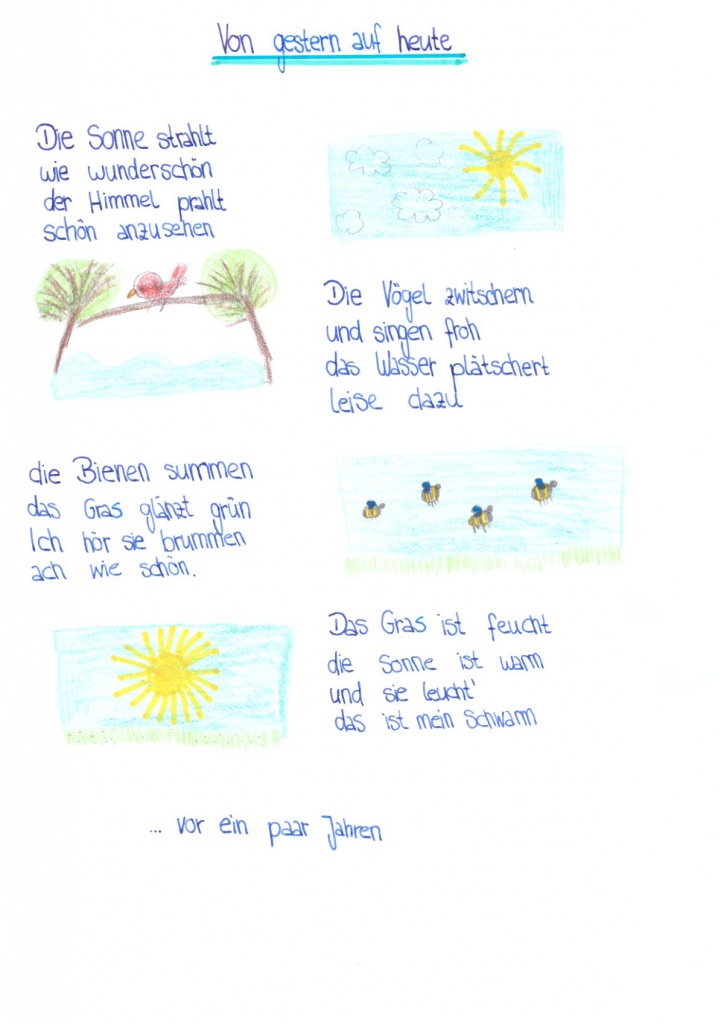 Von gestern auf heute
Die Sonne strahlt
wie wunderschön
der Himmel prahlt
schön anzusehen
Die Vögel zwitschern
und singen froh
das Wasser plätschert
leise dazu
die Bienen summen
das Gras glänzt grün
Ich hör sie brummen
ach wie schön.
Das Gras ist feucht
die Sonne ist warm
und sie leucht'
das ist mein Schwarm
... vor ein paar Jahren